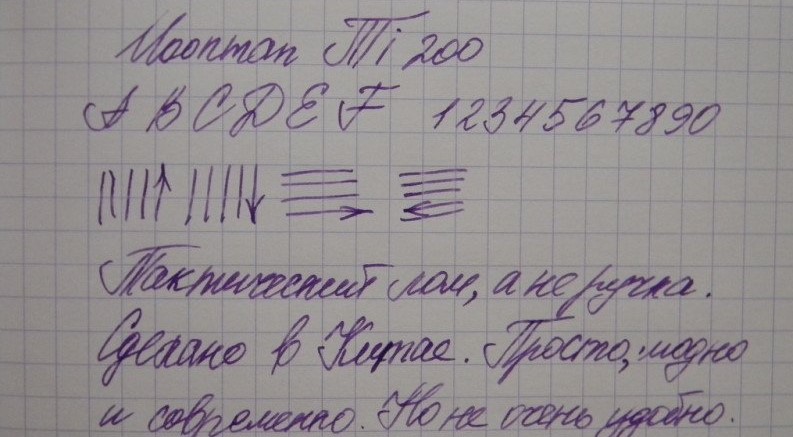 Мооптап Ti 200
A B C D E F 1234567890
Тактический лом, а не ручка.
Сделано в Китае. Просто, модно
и современно. Но не очень удобно.